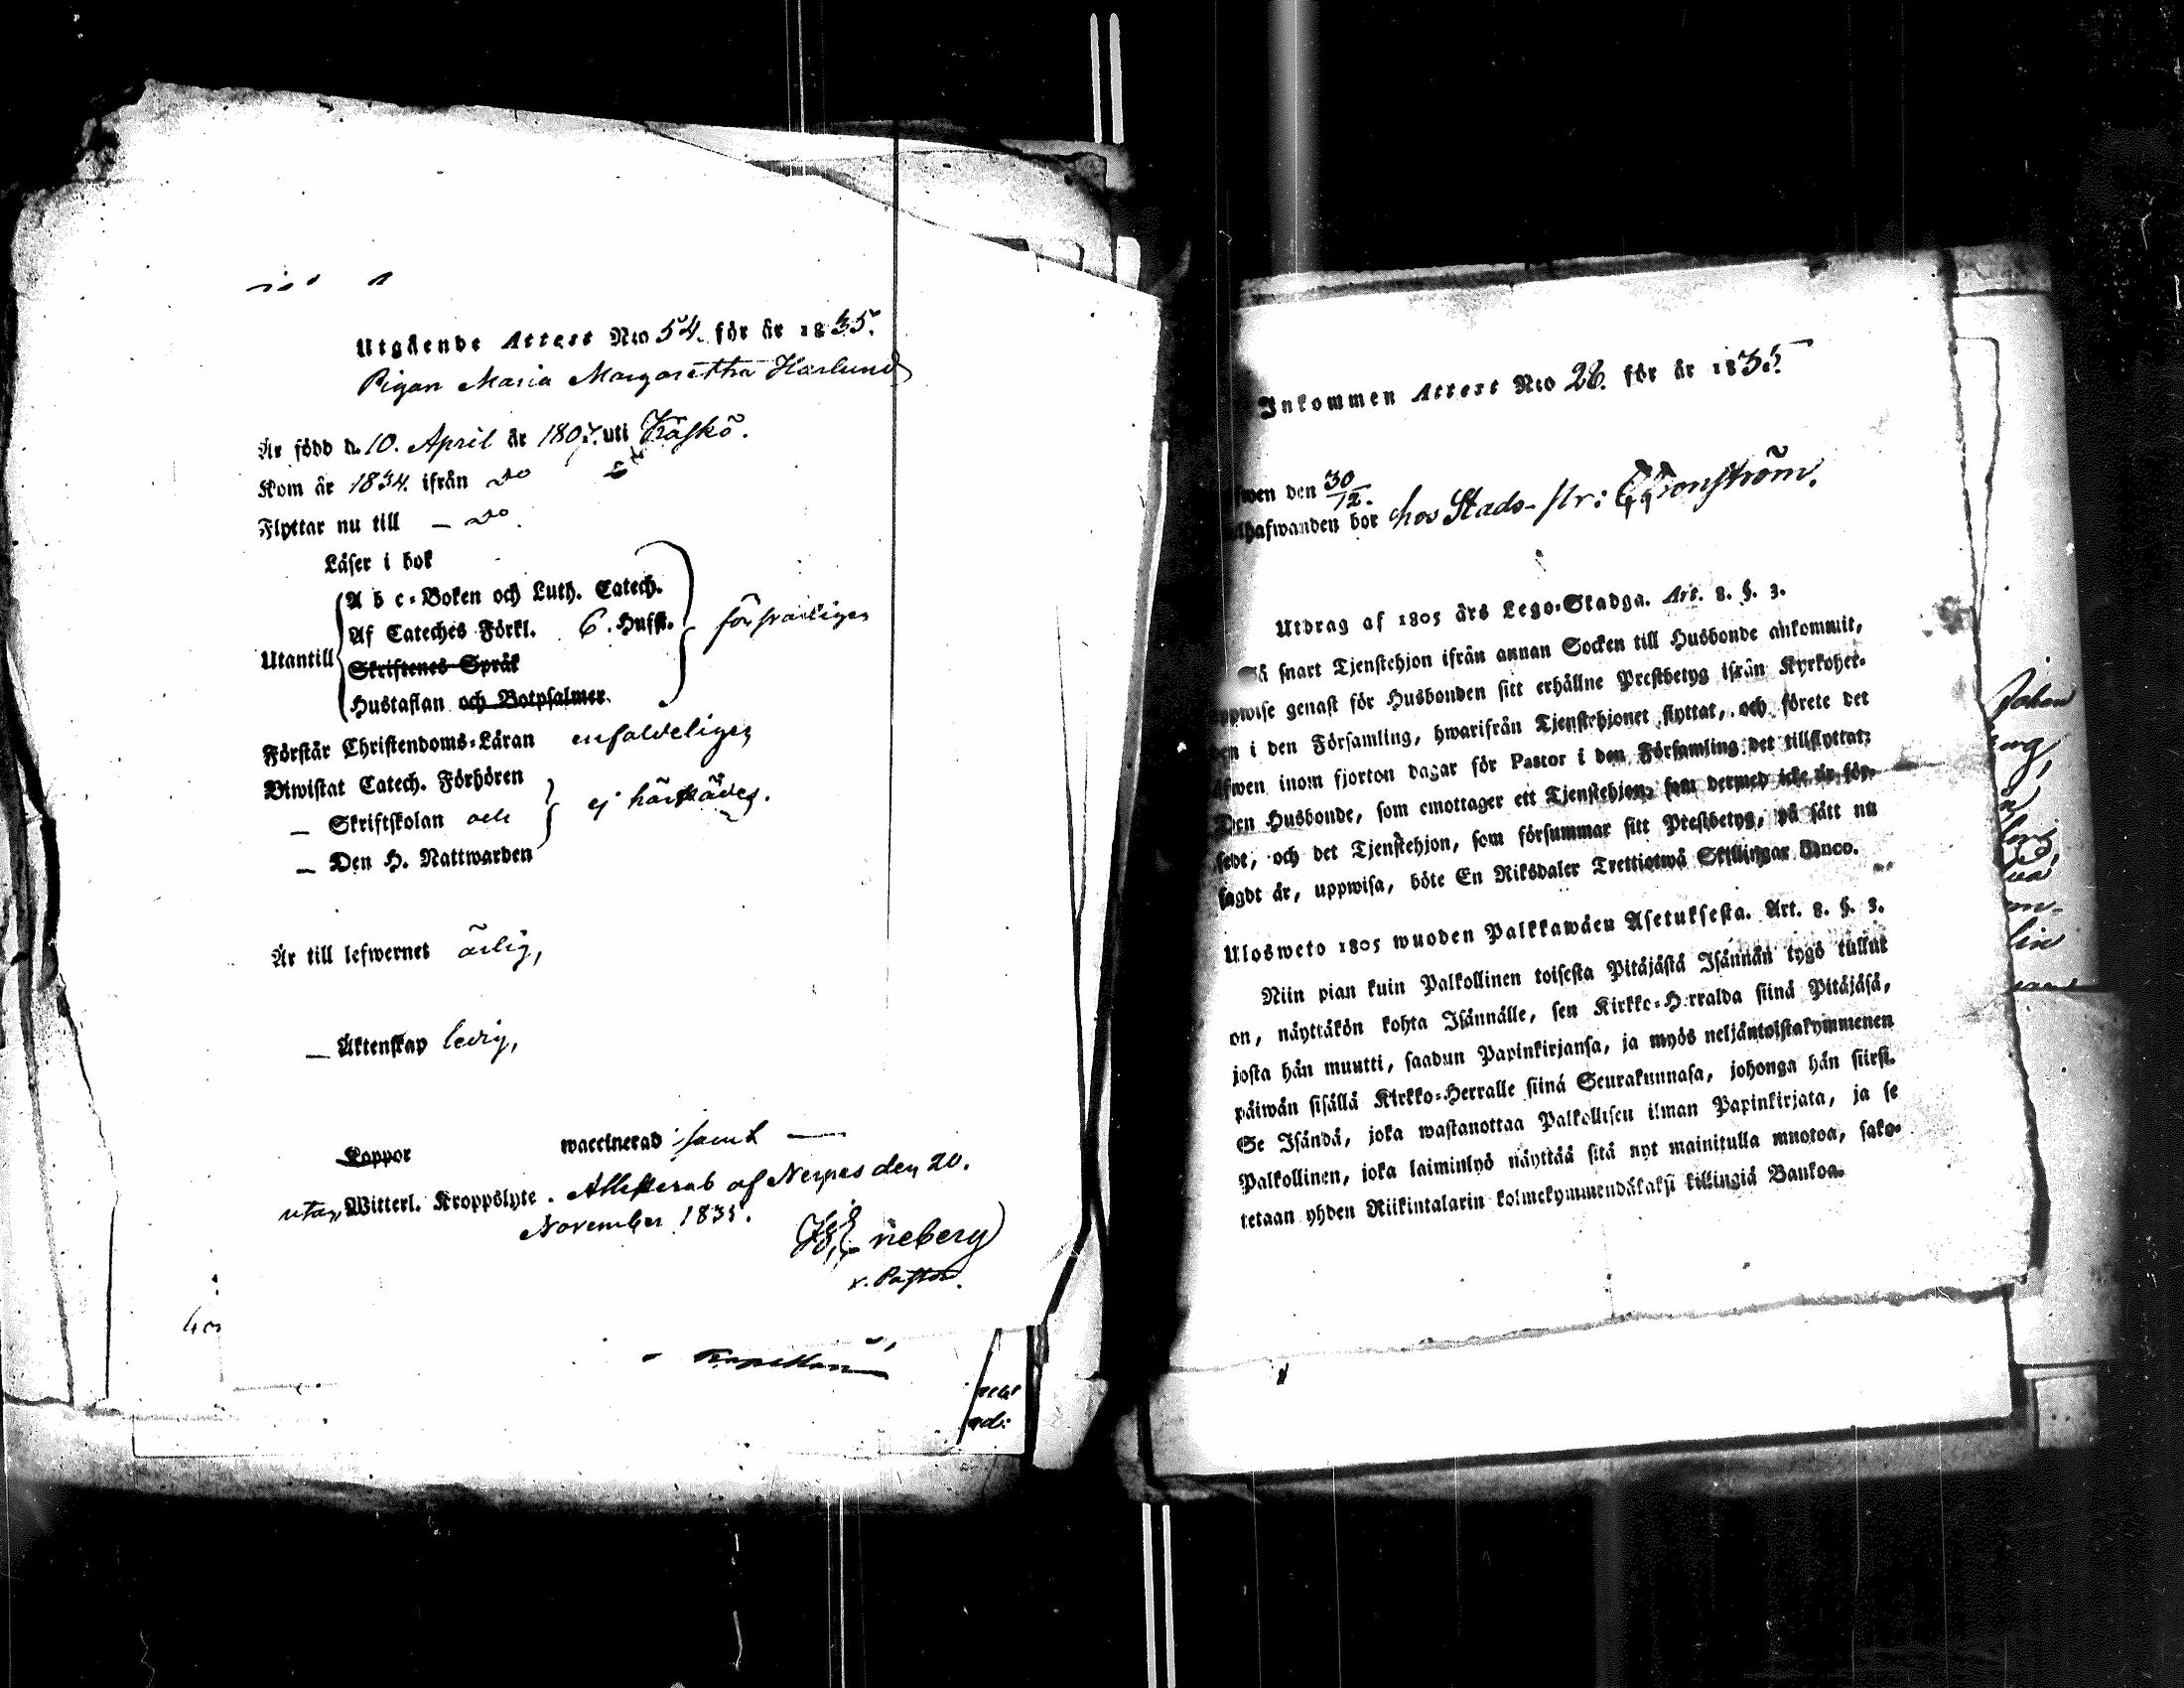 Utgående Attest N:o 54. för år 1835.
Pigan Maria Margaretha Harlund
Är född d. 10. April år 1807. uti Kaskö.
Kom år 1834. ifrån Do
Flyttar nu till – Do.
Läser i bok
A b c-Boken och Luth. Catech.
Af Cateches Förkl. 6. Hufst. försvarligen
Utantill
Skriftenes Språk
Hustaflan och Botpsalmer.
Förstår Christendoms-Läran enfaldeligen
Biwistat Catech. Förhören
— Skriftskolan och ej härstädes.
— Den H. Nattwarden
Är till lefwernet ärlig,
— Äktenskap ledig,
Koppor waccinerad samt —
utan Witterl. Kroppslyte. Attesterab af Nerpes den 20.
November 1835.
Eneberg
v. Pastor.
Inkommen Attest N:o 28. för år 1835.
fwen den 30/12.
hafwanden bor hos Stads-
Utdrag af 1805 års Lego-Stadga. Art. 8. §. 3.
Så snart Tjenstehjon ifrån annan Socken till Husbonde ankommit,
uppwise genast för Husbonden sitt erhållne Prestbetyg ifrån Kyrkoher-
den i den Församling, hwarifrån Tjenstehjonet flyttat, och förete det
äfwen inom fjorton dagar för Pastor i den Församling det tillflyttat;
Den Husbonde, som emottager ett Tjenstehjon, som dermed icke är för-
sedt, och det Tjenstehjon, som försummar sitt Prestbetyg, på sätt nu
sagdt är, uppwisa, böte En Riksdaler Trettiotwå Skillingar Banco.
Ulosweto 1805 wuoden Palkkawäen Asetuksesta. Art. 8. §. 3.
Niin pian kuin Palkollinen toisesta Pitäjästä Isännän tygö tullut
on, näyttäkön kohta Isännälle, sen Kirkko-Herralda siinä Pitäjäsä,
josta hän muutti, saadun Papinkirjansa, ja myös neljäntoistakymmenen
päiwän sisällä Kirkko-Herralle siinä Seurakunnasa, johonga hän siirsi.
Se Isändä, joka wastanottaa Palkollisen ilman Papinkirjata, ja se
Palkollinen, joka laiminlyö näyttää sitä nyt mainitulla muotoa, sako-
tetaan yhden Riikintalarin kolmekymmendäkaksi killingiä Bankoa.